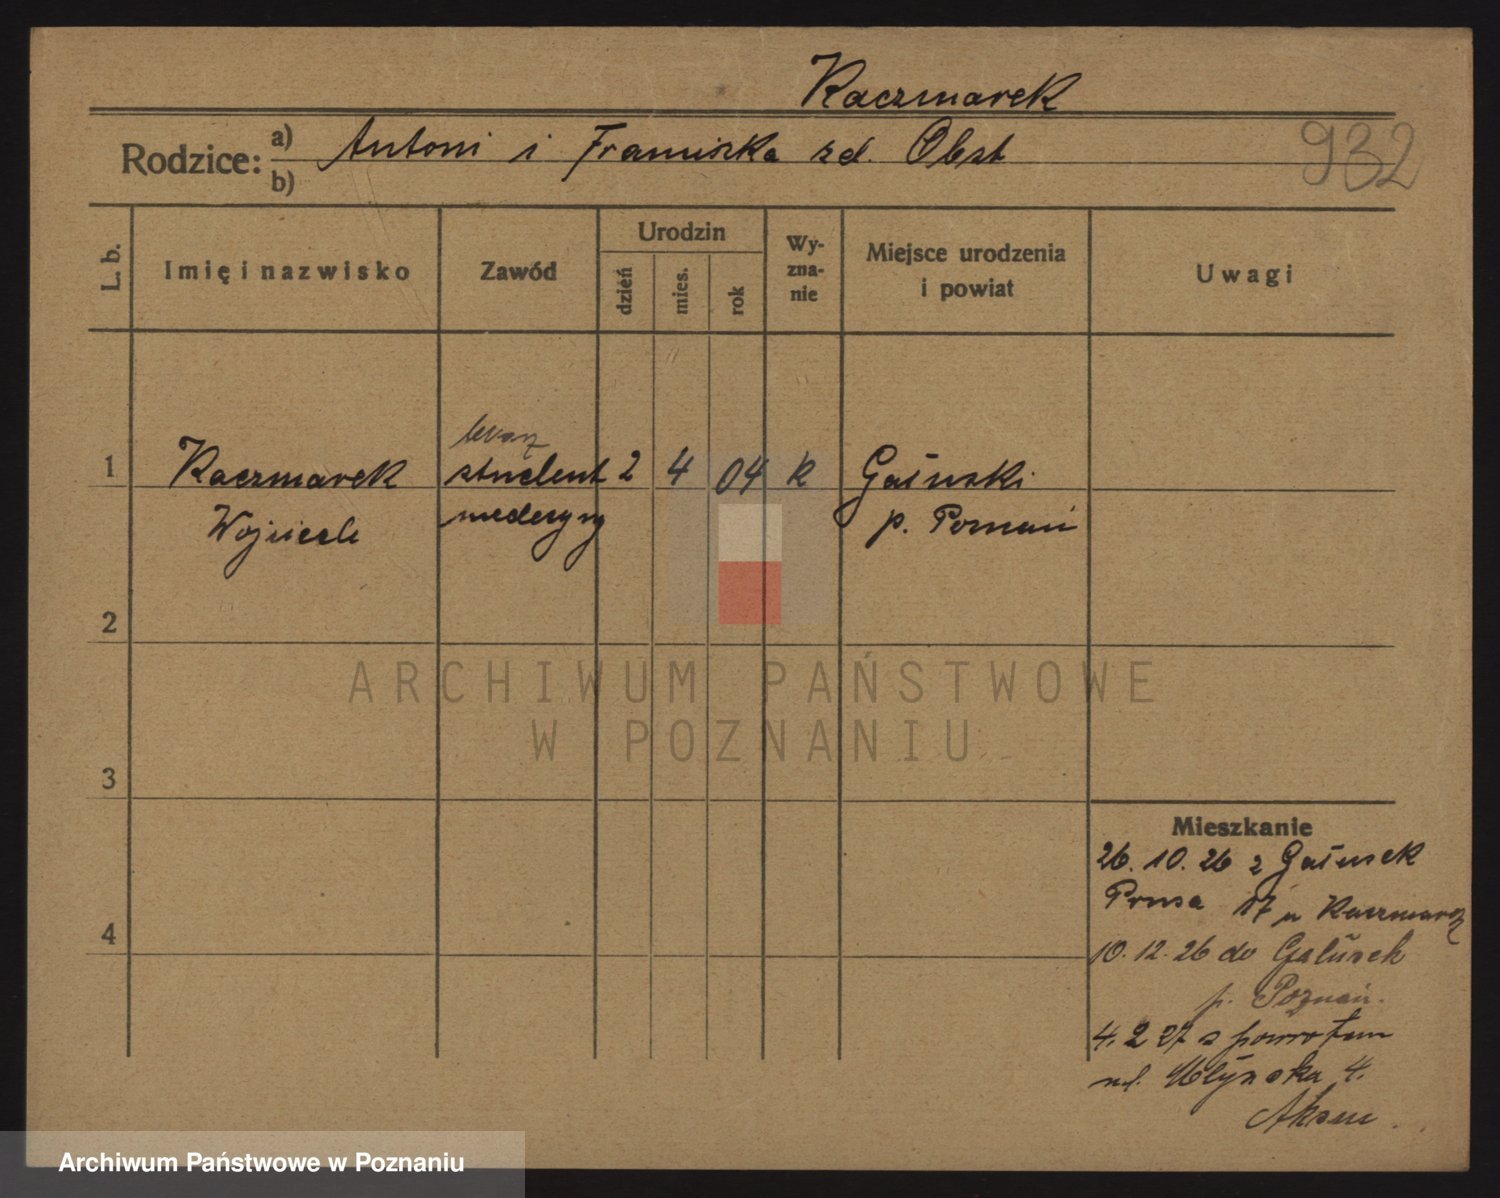 Kaczmarek
932
Rodzice: a) Antoni i Franciszka zd. Obst
b)
L. b.
Imię i nazwisko
Zawód
Urodzin
dzień
mies.
rok
Wy-
zna-
nie
Miejsce urodzenia
i powiat
Uwagi
1
Kaczmarek student 2 4 04 k
Wojciech medycyny p. Poznań
2
ARCHIWUM PAŃSTWOWE
W POZNANIU
3
Mieszkanie
26. 10. 26 z
Prusa 17 u Kaczmarek
4
10. 12. 26 do
p. Poznań.
4. 2 27 z powrotem
ul. Młyńska 4.
Archiwum Państwowe w Poznaniu